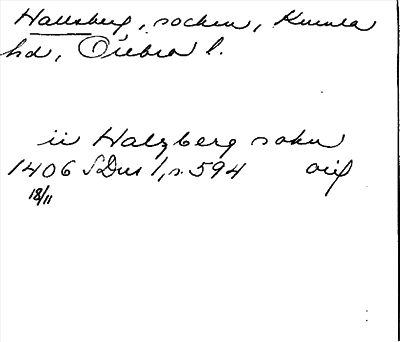 Hallsberg, socken, Kumla
hd, Örebro l.
ii Halzberg sokn
1406 SDns 1, s. 594 orig
18/11